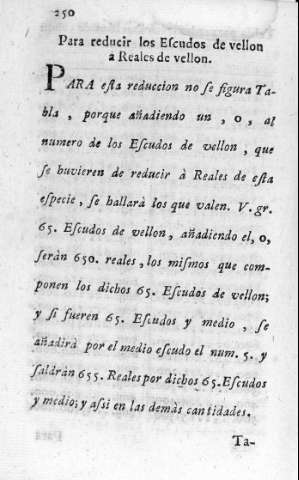 250
Para reducir los Eſcudos de vellon
à Reales de vellon.
PARA eſta reduccion no ſe figura Ta-
bla , porque añadiendo un , 0 , al
numero de los Eſcudos de vellon , que
ſe huvieren de reducir à Reales de eſta
eſpecie, ſe hallarà los que valen. V. gr.
65. Eſcudos de vellon, añadiendo el, 0,
ſeràn 650. reales, los miſmos que com-
ponen los dichos 65. Eſcudos de vellon;
y ſi fueren 65. Eſcudos y medio , ſe
añadirà por el medio eſcudo el num. 5. y
ſaldràn 655. Reales por dichos 65. Eſcudos
y medio; y aſsi en las demàs cantidades.
Ta-